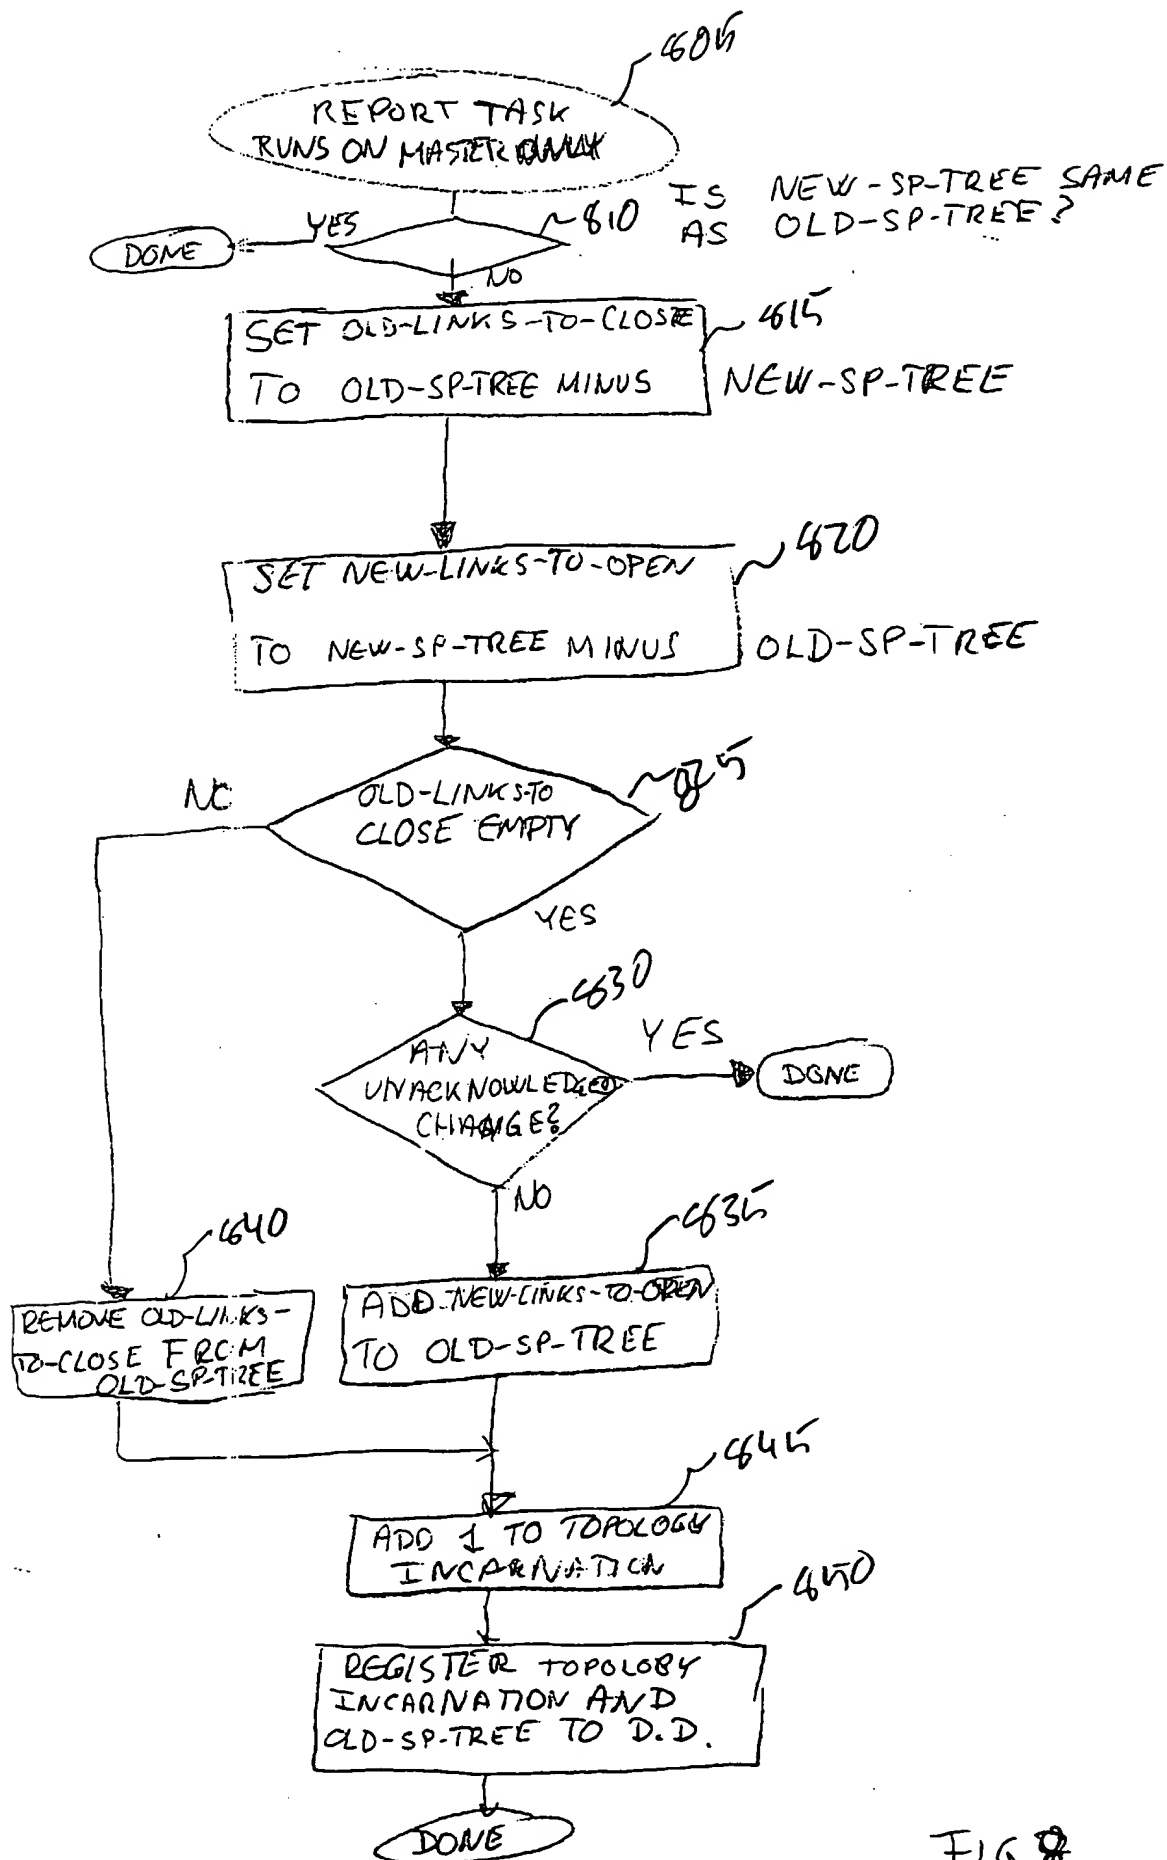 805
REPORT TASK
RUNS ON MASTER ONLY
IS NEW-SP-TREE SAME
AS OLD-SP-TREE?
810
YES
DONE
NO
815
SET OLD-LINKS-TO-CLOSE
TO OLD-SP-TREE MINUS NEW-SP-TREE
820
SET NEW-LINKS-TO-OPEN
TO NEW-SP-TREE MINUS OLD-SP-TREE
825
NO
OLD-LINKS-TO
CLOSE EMPTY
YES
830
ANY
UNACKNOWLEDGED
CHANGE?
YES
DONE
NO
835
840
REMOVE OLD-LINKS-
TO-CLOSE FROM
OLD-SP-TREE
ADD NEW-LINKS-TO-OPEN
TO OLD-SP-TREE
845
ADD 1 TO TOPOLOGY
INCARNATION
850
REGISTER TOPOLOGY
INCARNATION AND
OLD-SP-TREE TO D.D.
DONE
FIG 8